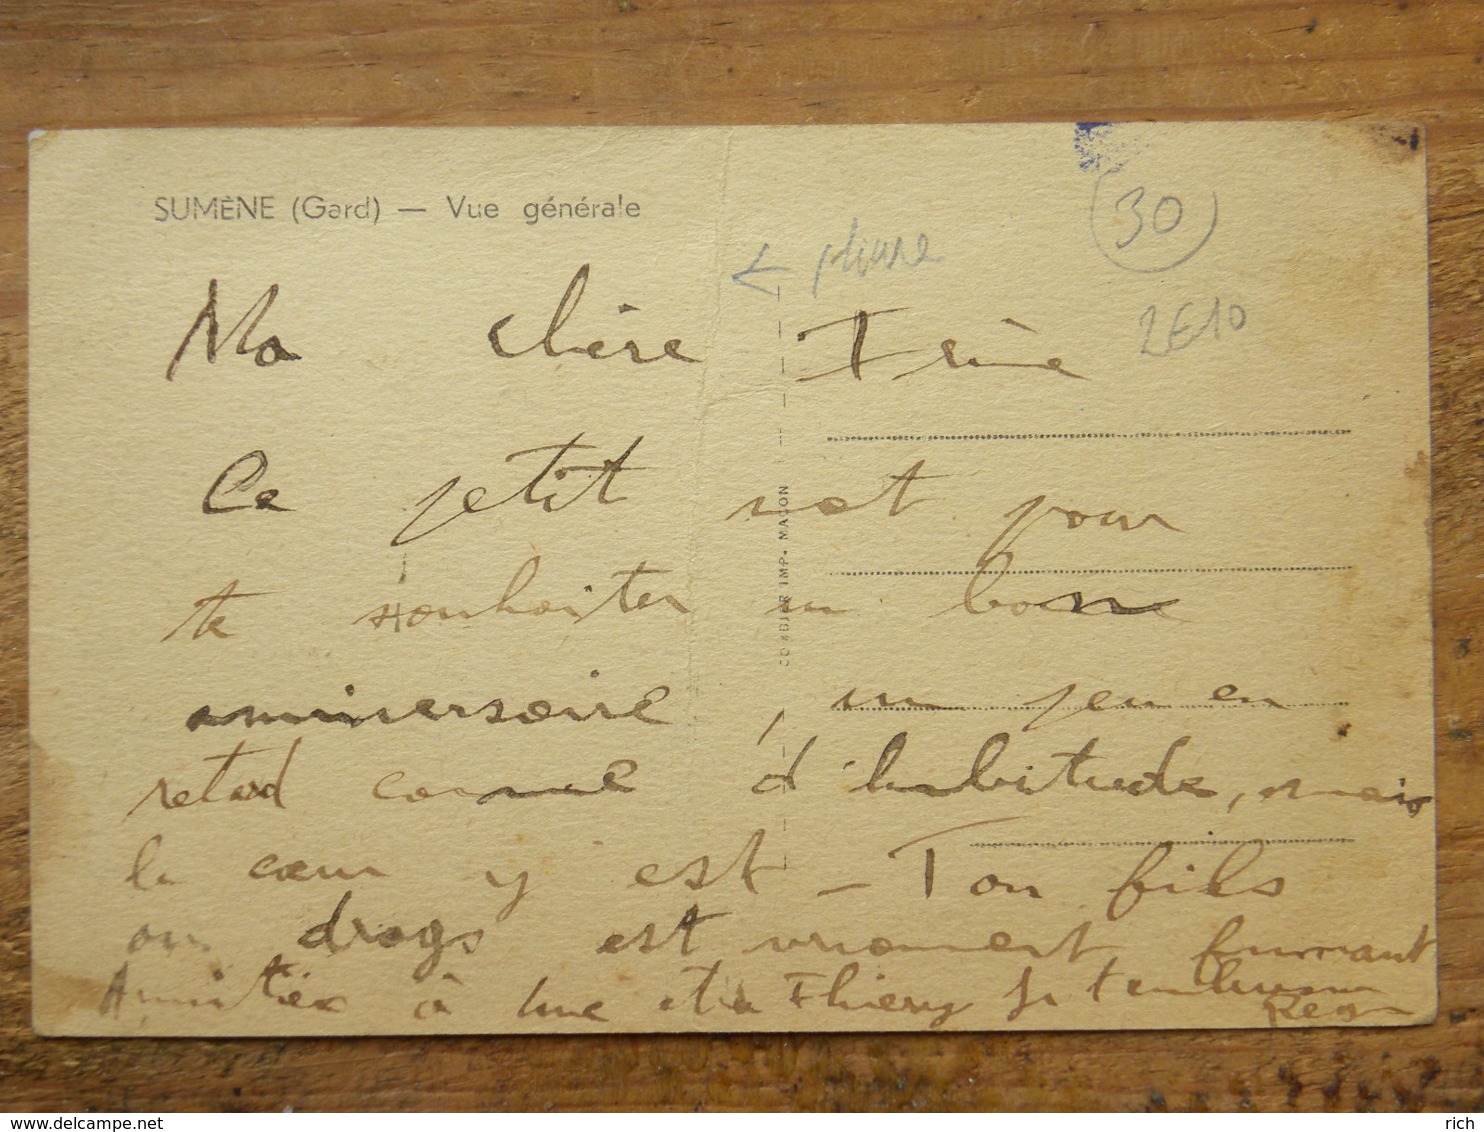 SUMÈNE (Gard) — Vue générale
30
← pliure
2€10
Ma chère Irène
Ce petit mot pour
te souhaiter un bonne
anniversaire, un peu en
retard comme d'habitude, mais
le cœur y est - Ton fils
est vraiment fumant
Amitiés à Luc et à Thiery Je t'embrasse
COMBIER IMP. MACON
www.delcampe.net
rich